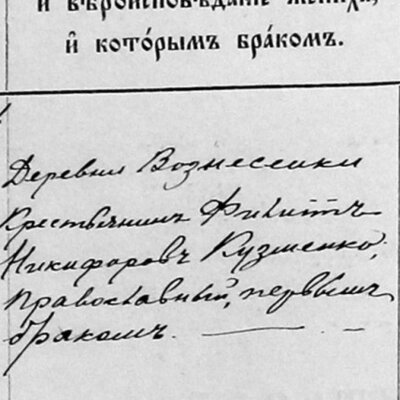 и вѣроисповѣданіе жениха,
и҆ кото́рымъ бра́комъ.
Деревни Вознесенки
крестьянинъ Филиппъ
Никифоровъ Кузменко,
православный, первымъ
бракомъ.